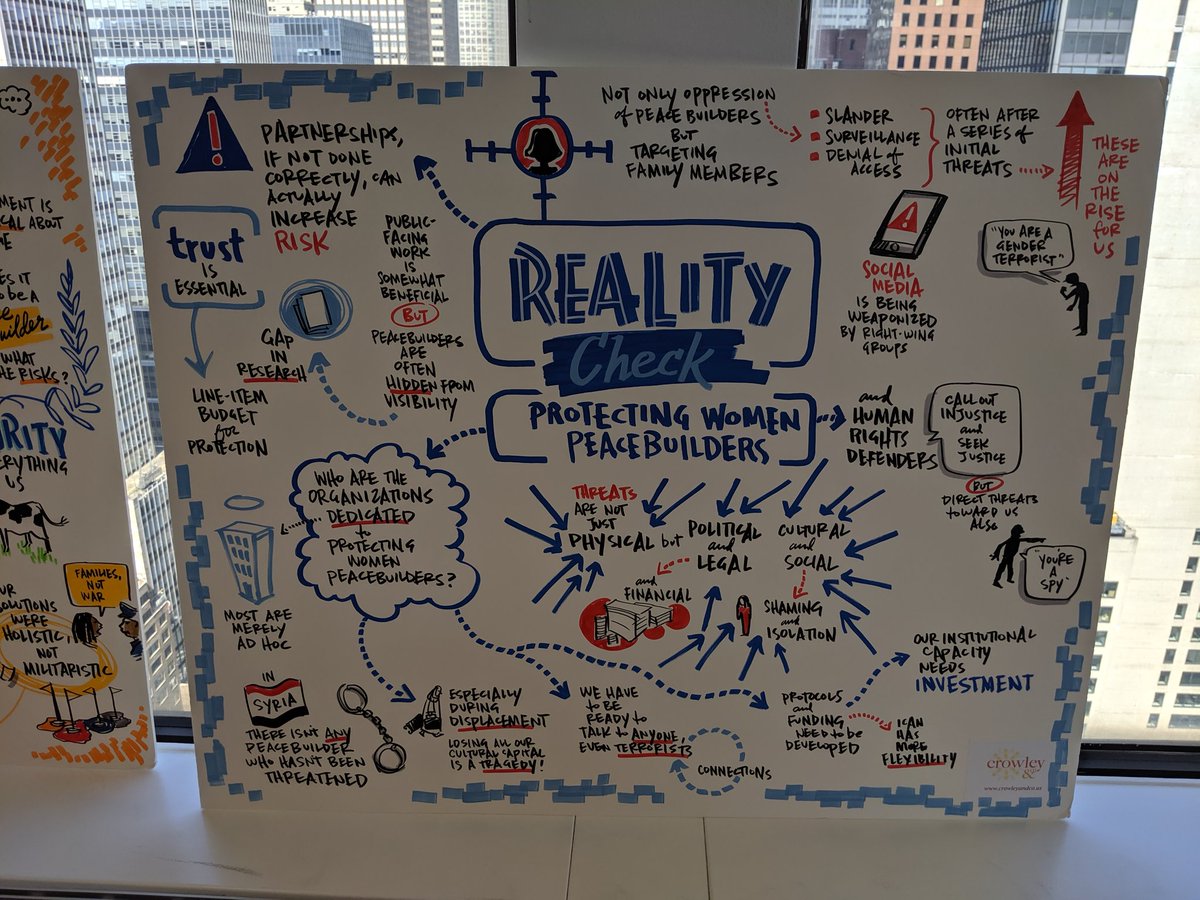 MENT IS
CAL ABOUT
ES IT
BE A
WHAT
HE RISKS?
URITY
ERYTHING
US
FAMILIES,
NOT
WAR
OUR
SOLUTIONS
WERE
HOLISTIC,
NOT
MILITARISTIC
!
PARTNERSHIPS,
IF NOT DONE
CORRECTLY, CAN
ACTUALLY
INCREASE
RISK
trust
IS
ESSENTIAL
LINE-ITEM
BUDGET
for
PROTECTION
GAP
IN
RESEARCH
PUBLIC-
FACING
WORK
IS
SOMEWHAT
BENEFICIAL
BUT
PEACEBUILDERS
ARE
OFTEN
HIDDEN FROM
VISIBILITY
NOT ONLY OPPRESSION
of PEACE BUILDERS
BUT
TARGETING
FAMILY MEMBERS
SLANDER
SURVEILLANCE
DENIAL of
ACCESS
OFTEN AFTER
A SERIES of
INITIAL
THREATS
THESE
ARE
ON
THE
RISE
for
US
REALITY
Check
PROTECTING WOMEN
PEACEBUILDERS
SOCIAL
MEDIA
IS BEING
WEAPONIZED
BY RIGHT-WING
GROUPS
"YOU ARE A
GENDER
TERRORIST"
and
HUMAN
RIGHTS
DEFENDERS
CALL OUT
INJUSTICE
and
SEEK
JUSTICE
BUT
DIRECT THREATS
toWARD US
ALSO
"YOU'RE
A
SPY"
WHO ARE THE
ORGANIZATIONS
DEDICATED
to
PROTECTING
WOMEN
PEACEBUILDERS?
MOST ARE
MERELY
AD HOC
THREATS
ARE NOT
JUST
PHYSICAL but
POLITICAL
and
LEGAL
CULTURAL
and
SOCIAL
and
FINANCIAL
SHAMING
and
ISOLATION
IN
SYRIA
THERE ISN'T ANY
PEACEBUILDER
WHO HASN'T BEEN
THREATENED
ESPECIALLY
DURING
DISPLACEMENT
LOSING ALL OUR
CULTURAL CAPITAL
IS A TRAGEDY!
WE HAVE
to BE
READY to
TALK to ANYONE,
EVEN TERRORISTS
CONNECTIONS
PROTOCOLS
and
FUNDING
NEED to be
DEVELOPED
OUR INSTITUTIONAL
CAPACITY
NEEDS
INVESTMENT
ICAN
HAS
MORE
FLEXIBILITY
crowley
& co
www.crowleyandco.us